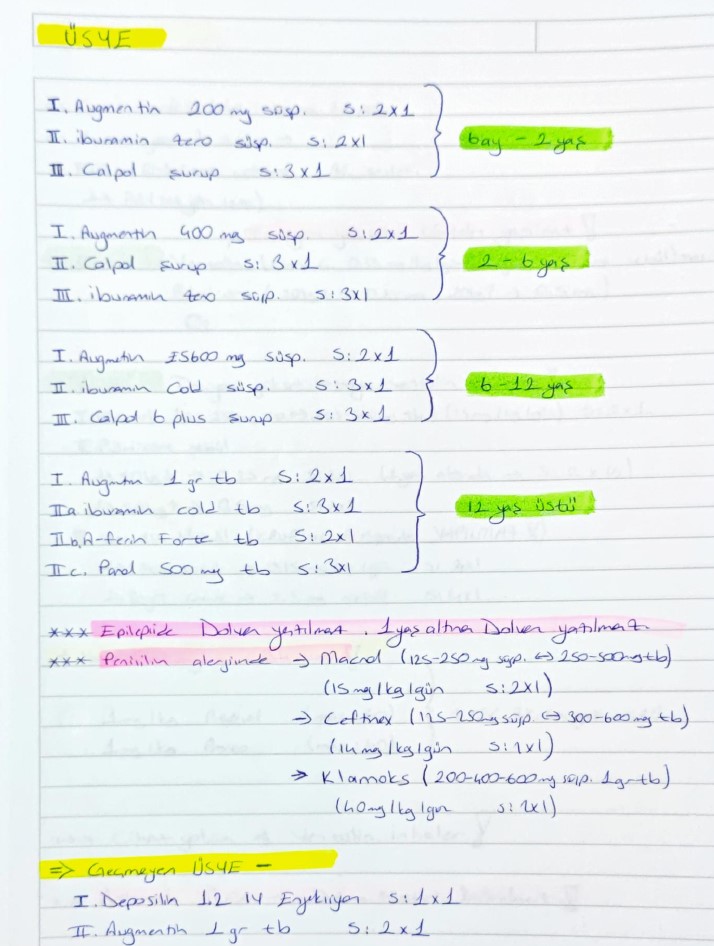 ÜSYE
I. Augmentin 200 mg süsp. S: 2x1
II. iburamin zero süsp. S: 2x1
III. Calpol surup S: 3x1
6ay - 2 yaş
I. Augmentin 400 mg süsp. S: 2x1
II. Calpol surup S: 3x1
III. iburamin zero süsp. S: 3x1
2 - 6 yaş
I. Augmetin ES600 mg süsp. S: 2x1
II. iburamin Cold süsp. S: 3x1
III. Calpol 6 plus surup S: 3x1
6 - 12 yaş
I. Augmentin 1 gr tb S: 2x1
IIa iburamin cold tb S: 3x1
IIb. A-ferin Forte tb S: 2x1
IIc. Parol 500 mg tb S: 3x1
12 yaş üstü
*** Epilepside Dolven yazılmaz. 1 yaş altına Dolven yazılmaz.
*** Penisilin alerjisinde → Macrol (125-250 mg süsp. ⇔ 250-500mg tb)
(15 mg/kg/gün S: 2x1)
→ Ceftinex (125-250mg süsp. ⇔ 300-600 mg tb)
(14 mg/kg/gün S: 1x1)
→ Klamoks (200-400-600mg süsp. 1gr tb)
(40 mg/kg/gün S: 2x1)
⇒ Geçmeyen ÜSYE -
I. Deposilin 1.2 IU Enjeksiyon S: 1x1
II. Augmentin 1 gr tb S: 2x1